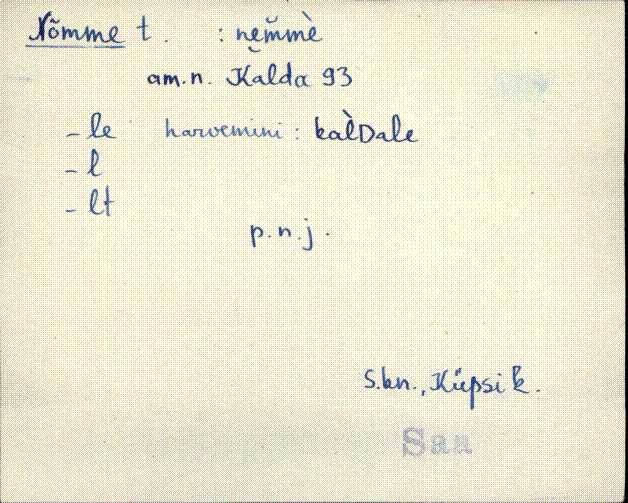 Nõmme t. : ne̮m̆mè
am.n. Kalda 93
- le harvemini : kal̀Dale
- l
- lt
p.n.j.
S.kn., Küpsik.
Saa